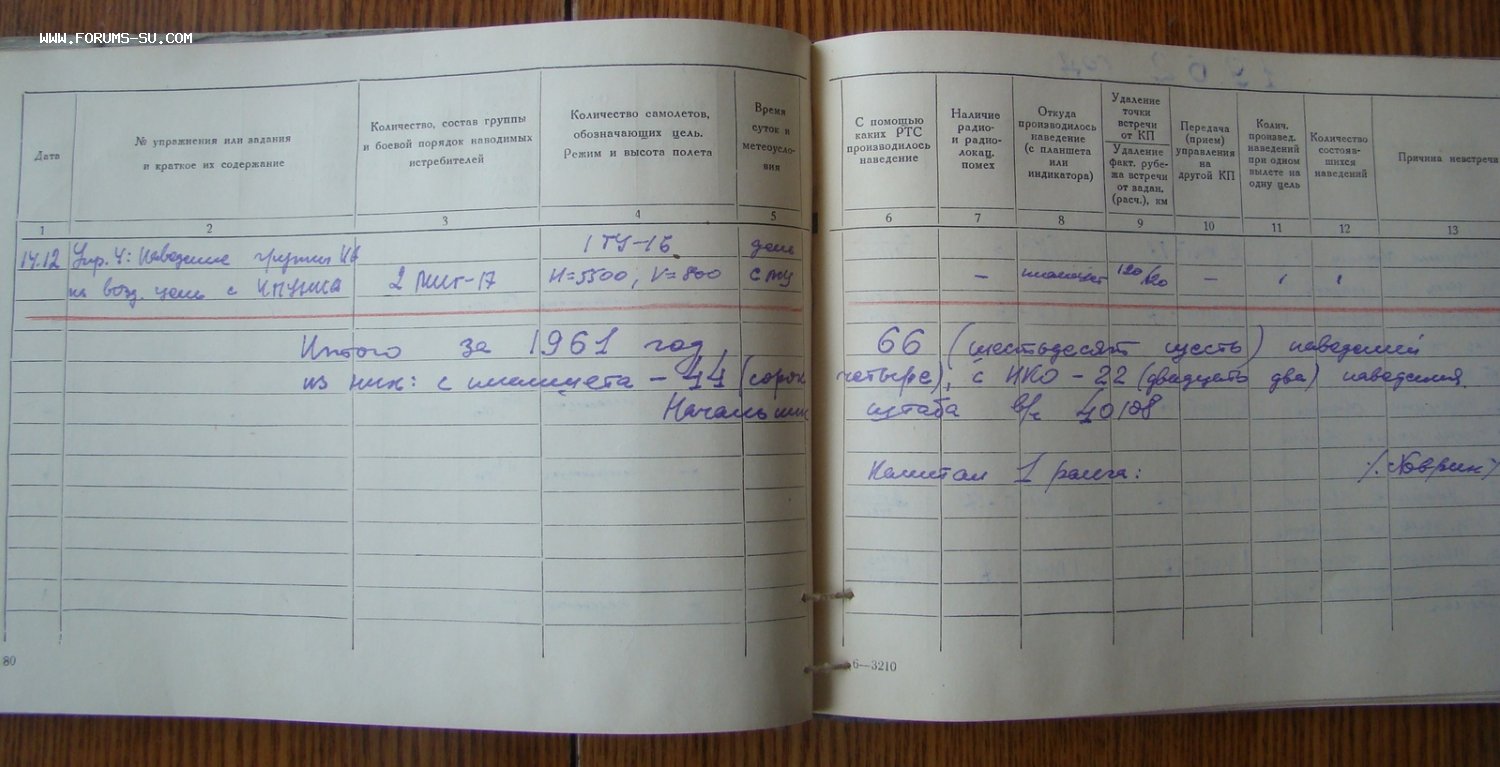 WWW.FORUMS-SU.COM
Дата
№ упражнения или задания
и краткое их содержание
Количество, состав группы
и боевой порядок наводимых
истребителей
Количество самолетов,
обозначающих цель.
Режим и высота полета
Время
суток и
метеоусло-
вия
С помощью
каких РТС
производилось
наведение
Наличие
радио-
и радио-
локац.
помех
Откуда
производилось
наведение
(с планшета
или
индикатора)
Удаление
точки
встречи
от КП
Удаление
факт. рубе-
жа встречи
от задан.
(расч.), км
Передача
(прием)
управления
на
другой КП
Колич.
произвед.
наведений
при одном
вылете на
одну цель
Количество
состояв-
шихся
наведений
Причина невстречи
1 2 3 4 5 6 7 8 9 10 11 12 13
14.12 Упр. 4: Наведение группы 1 ТУ-16 днем
на возд. цель с 2 МИГ-17 H=5500, V=800 СМУ – планшет 120/120 – 1 1
Итого за 1961 год, 66 (шестьдесят шесть) наведений
из них: с планшета – 44 (сорок четыре), с ИКО – 22 (двадцать два) наведения
Начальник штаба в/ч 40108
Капитан 1 ранга:
80
6—3210